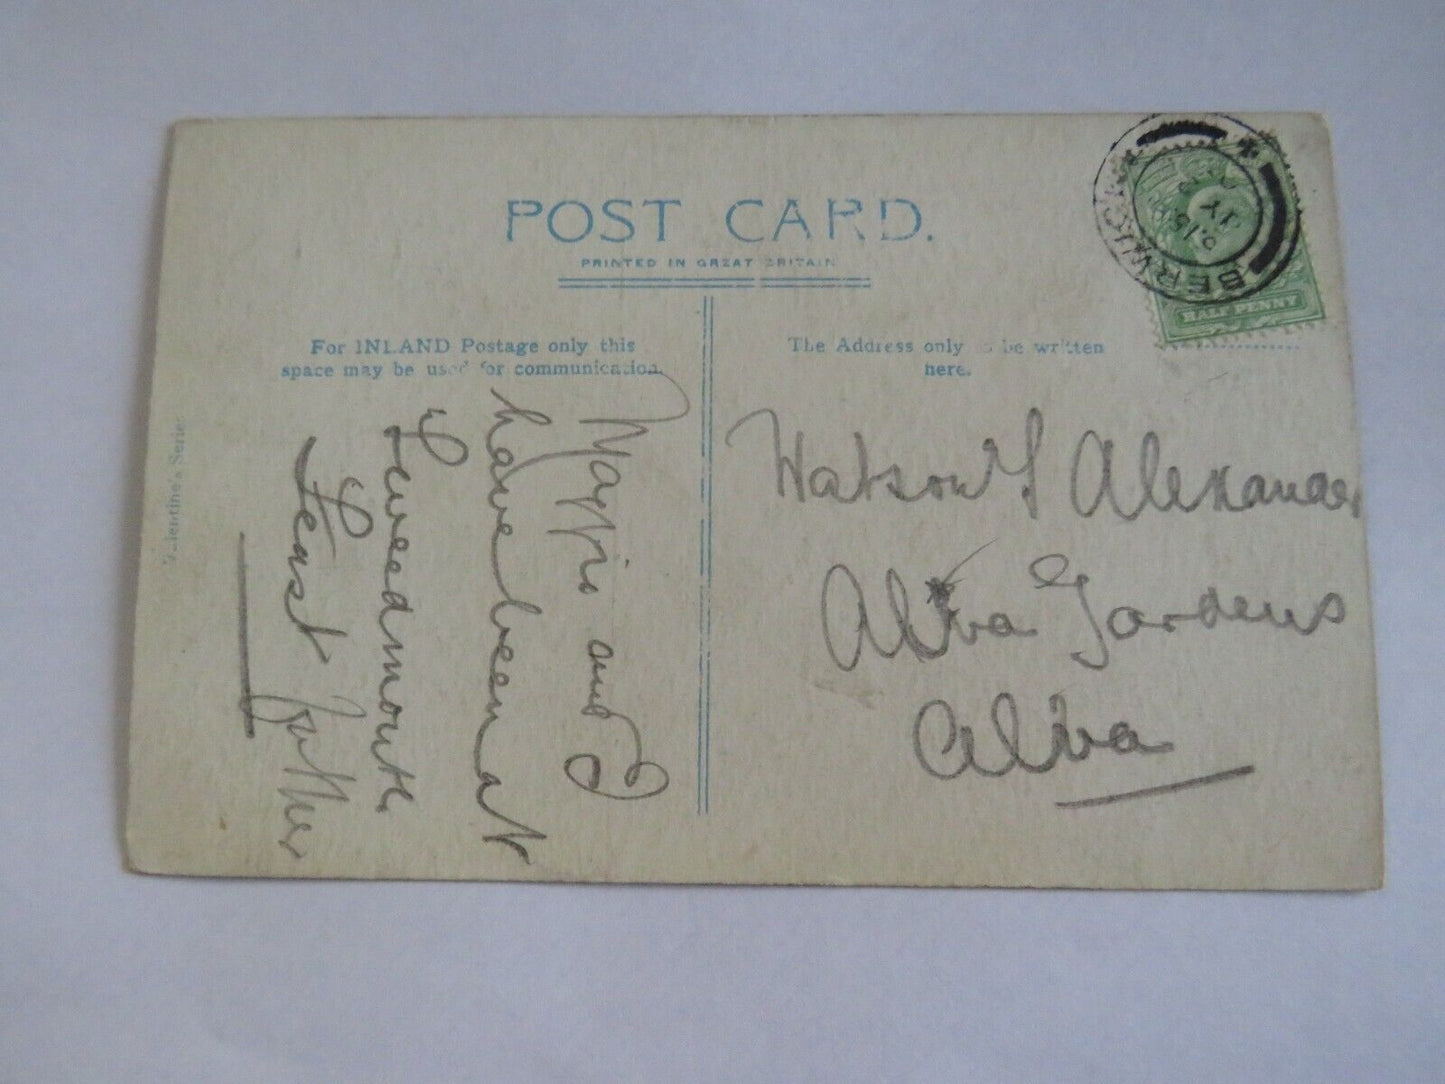 POST CARD.
PRINTED IN GREAT BRITAIN
For INLAND Postage only this
space may be used for communication.
The Address only to be written
here.
Valentine's Series
BERWICK
HALF PENNY
Maggie and I
have been at
Tweedmouth
Feast
Watson S Alexander
Alva Gardens
Alva